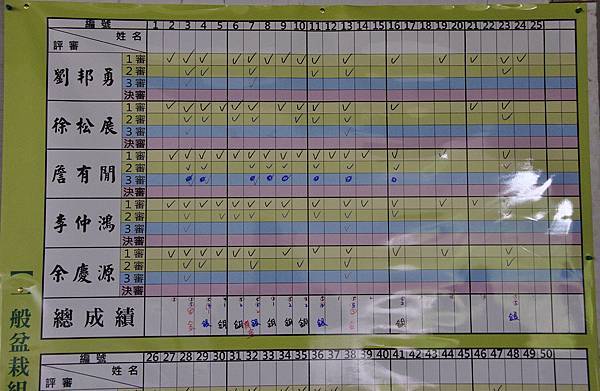 編號 1 2 3 4 5 6 7 8 9 10 11 12 13 14 15 16 17 18 19 20 21 22 23 24 25
姓名
評審
劉邦勇 1審
2審
3審
決審
徐松展 1審
2審
3審
決審
詹有閒 1審
2審
3審
決審
李仲鴻 1審
2審
3審
決審
余慶源 1審
2審
3審
決審
總成績 銀 銅 銅 銀 銅 銅 銅 銀 銅 銀
【一般盆栽組
編號 26 27 28 29 30 31 32 33 34 35 36 37 38 39 40 41 42 43 44 45 46 47 48 49 50
姓名
評審
1審
2審